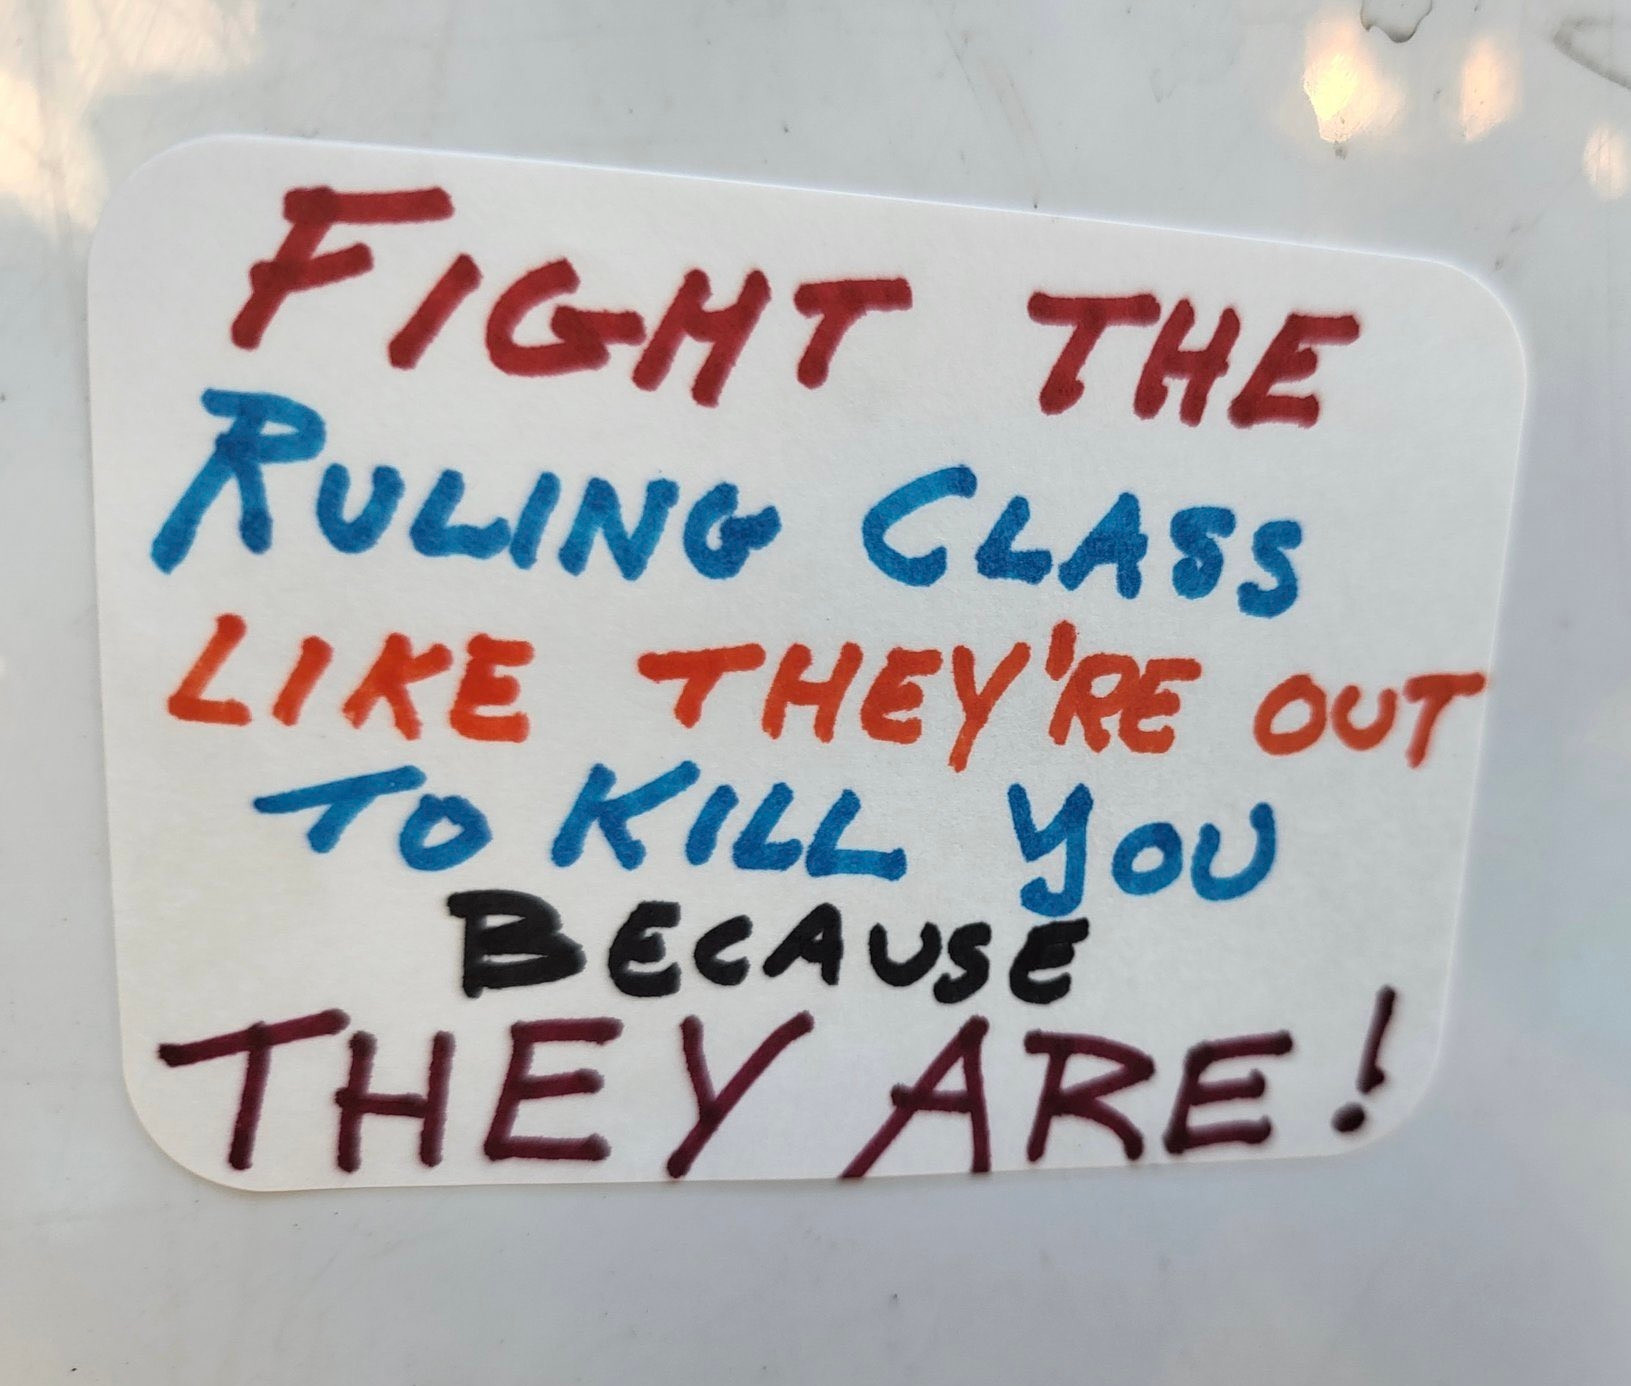 FIGHT THE
RULING CLASS
LIKE THEY'RE OUT
TO KILL YOU
BECAUSE
THEY ARE!